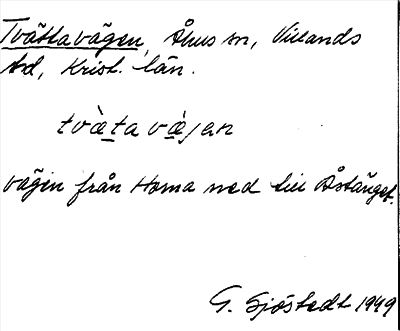 Tvättavägen, Åhus sn, Villands
hd, Krist. län.
tvæ̀ta væ̀gen
vägen från Horna ned till Åstänget.
G. Sjöstedt 1949